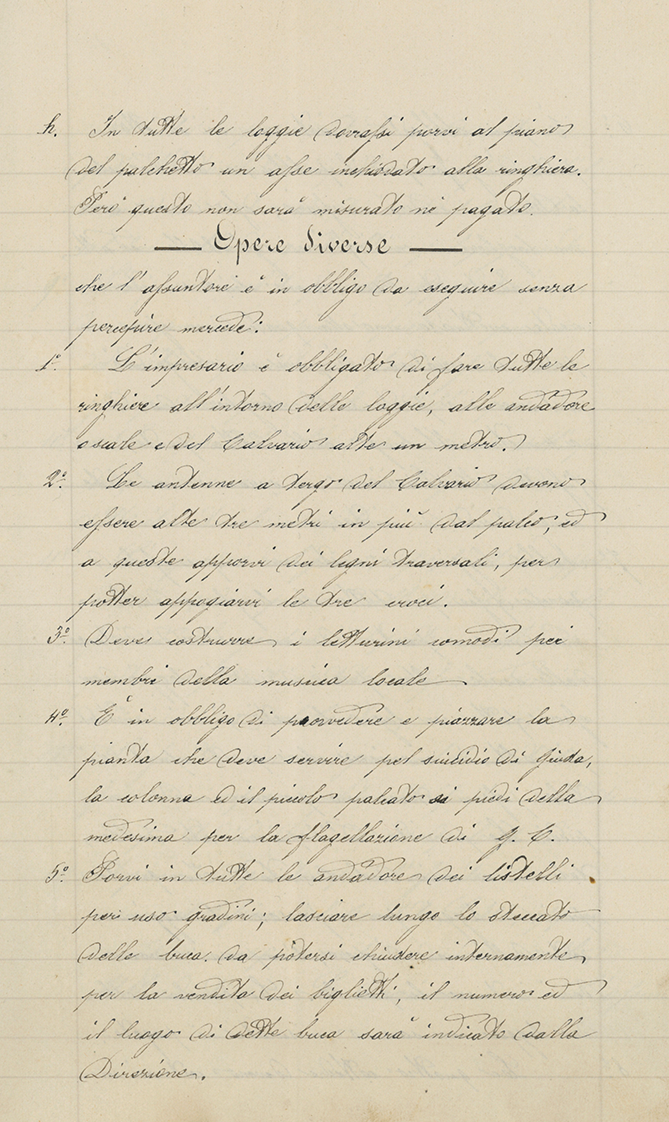 h. In tutte le loggie dovrassi porvi al piano
del palchetto un asse inchiodato alla ringhiera.
Però questo non sarà misurato nè pagato.
Opere diverse
che l'assuntore è in obbligo da eseguire senza
percepire mercede:
1º. L'impresario è obbligato di fare tutte le
ringhiere all'intorno delle loggie, alle andadore
o scale e del Calvario alte un metro.
2º. Le antenne a tergo del Calvario devono
essere alte tre metri in più dal palco, ed
a queste apporvi dei legni traversali, per
potter appogiarvi le tre croci.
3º. Deve costrurre i letturini comodi pei
membri della musica locale
4º. È in obbligo di provvedere e piazzare la
pianta che deve servire pel suicidio di Giuda,
la colonna ed il piccolo palcato ai piedi della
medesima per la flagellazione di G. C.
5º. Porvi in tutte le andadore dei listelli
per uso gradini; lasciare lungo lo steccato
delle buca da potersi chiudere internamente
per la vendita dei biglietti, il numero ed
il luogo di dette buca sarà indicato dalla
Direzione.